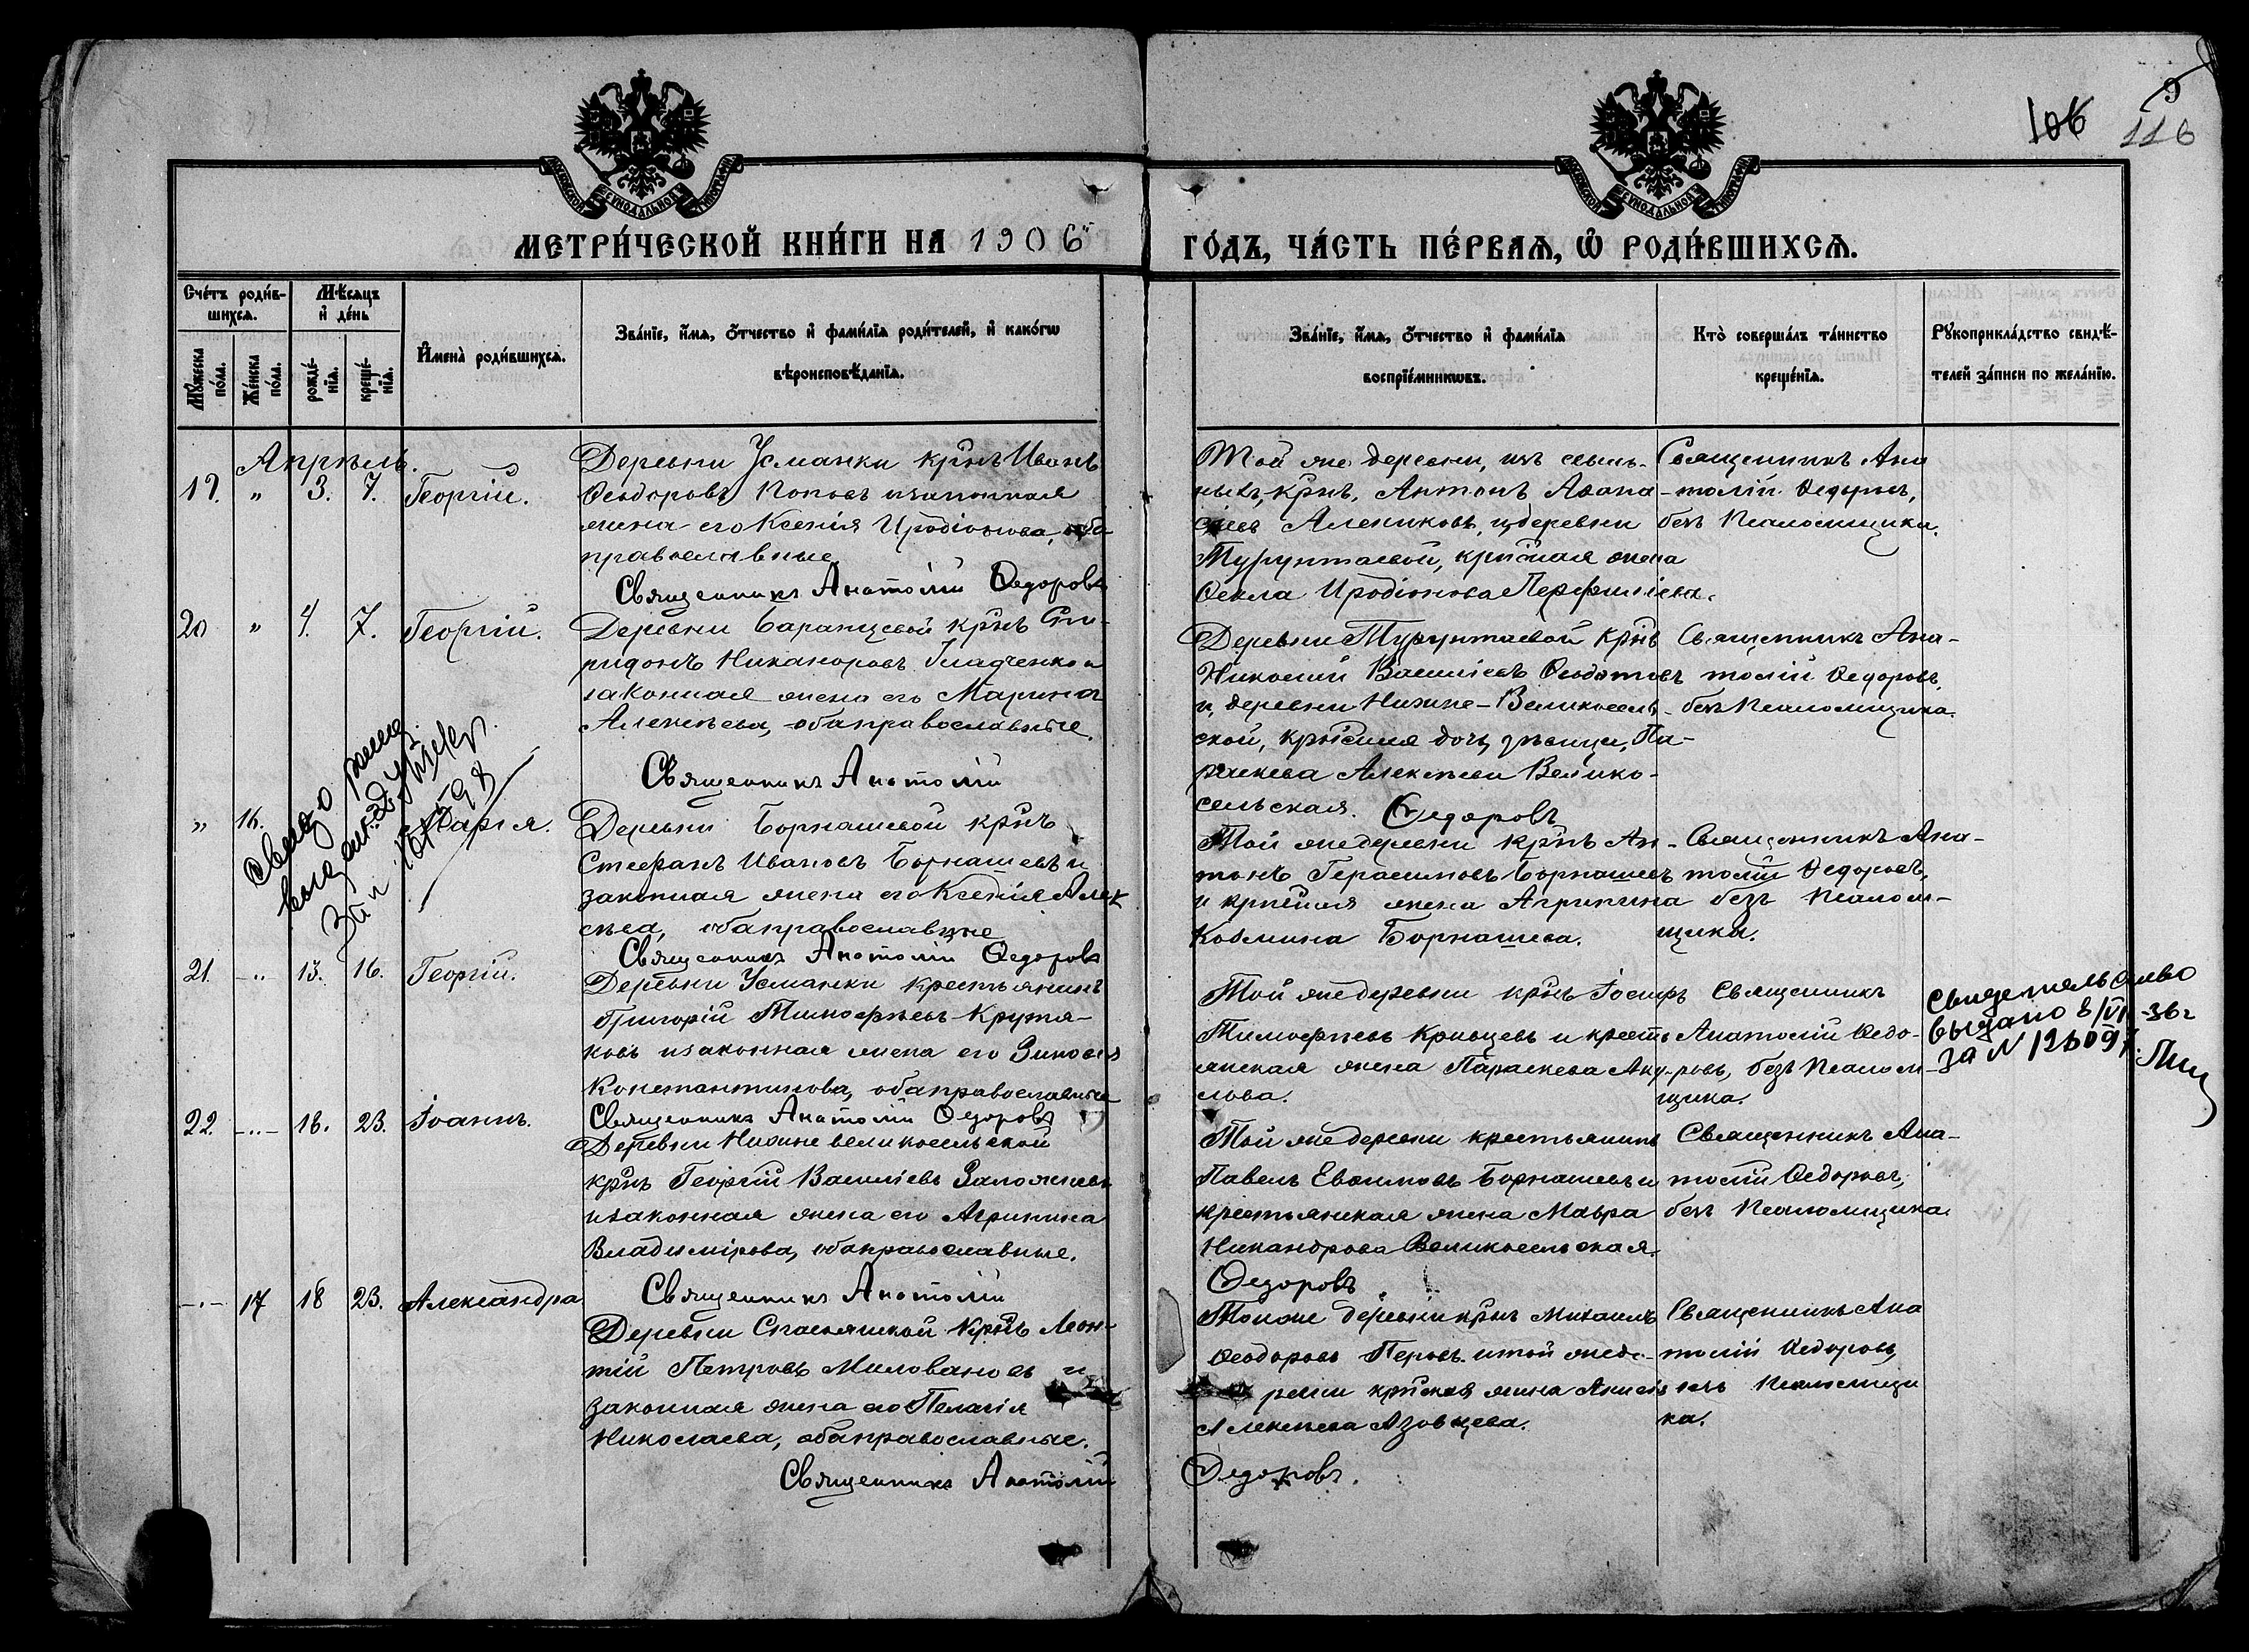 106
9
116
МЕТРИ́ЧЕСКОЙ КНИ́ГИ НА 1906
ГО́ДЪ, ЧА́СТЬ ПЕ́РВАЯ, Ѽ РОДИ́ВШИХСЯ.
Сче́тъ роди́в-
шихся.
Мѣ́сяцъ
и҆ де́нь
Мꙋ́жеска
по́ла.
Же́нска
по́ла.
рожде́-
нїя.
креще́-
нїя.
И҆мена̀ роди́вшихся.
Зва́нїе, и҆́мя, о҆́тчество и҆ фами́лїя роди́телей, и҆ како́гѡ
вѣроисповѣ́данїя.
Зва́нїе, и҆́мя, о҆́тчество и҆ фами́лїя
воспрїе́мникѡвъ.
Кто̀ соверша́лъ та́инство
креще́нїя.
Рꙋкоприкла́дство свидѣ́-
телей за́писи по жела́нїю.
Апрѣль.
19. " 3. 7. Георгій.
Деревни Усманки крнъ Иванъ
Ѳеодоровъ Поповъ и законная
жена его Ксенія Иродіонова, оба
православные
Священникъ Анатолій Ѳедоровъ
Той же деревни, изъ ссыль-
ныхъ, крнъ, Антонъ Аѳана-
сіевъ Алениковъ, и деревни
Турунтаевой, крнская жена
Ѳекла Иродіонова Перфильева.
Священникъ Ана
толій Ѳедоровъ,
безъ Псаломщика.
20 " 4. 7. Георгій.
Деревни Баранцевой крнъ Спи-
ридонъ Никаноровъ Гладченко и
законная жена его Марина
Алексѣева, оба православные.
Священникъ Анатолій
Деревни Турунтаевой крнъ
Николай Васильевъ Ѳеодотовъ
и, деревни Нижне-Великосель-
ской, крнская дочь, дѣвица, Па-
раскева Алексѣева Велико-
сельская. Ѳедоровъ
Священникъ Ана-
толій Ѳедоровъ,
безъ Псаломщика.
" 16.
Дарія.
Деревни Борнашевой крнъ
Стефанъ Ивановъ Борнашевъ и
законная жена его Ксенія Алек
сѣева, оба православные
Священникъ Анатолій Ѳедоровъ
Той же деревни крнъ Ан-
тонъ Герасимовъ Борнашевъ
и крнская жена Агрипина
Козмина Борнашева.
Священникъ Ана-
толій Ѳедоровъ,
безъ Псалом-
щика.
21. " 13. 16. Георгій.
Деревни Усманки крестьянинъ
Григорій Тимофѣевъ Кружа-
ковъ и законная жена его Зиновія
Константинова, оба православные
Священникъ Анатолій Ѳедоровъ
Той же деревни крнъ Іосифъ
Тимофѣевъ Кривцевъ и кресть
янская жена Параскева Аку-
лова.
Священникъ
Анатолій Ѳедо-
ровъ, безъ Псалом-
щика.
свидетельство
выдано 8/VI-36г
за N 126097.
22. " 18. 23. Іоаннъ.
Деревни Нижне великосельской
крнъ Георгій Васильевъ Заложневъ
и законная жена его Агрипина
Владимірова, оба православные.
Священникъ Анатолій
Той же деревни крестьянинъ
Павелъ Евѳимовъ Борнашевъ и
крестьянская жена Мавра
Никандрова Великосельская.
Ѳедоровъ
Священникъ Ана-
толій Ѳедоровъ,
безъ Псаломщика
" 17 18 23. Александра
Деревни Спасояйской крнъ Леон-
тій Петровъ Миловановъ и
законная жена его Пелагія
Николаева, оба православные.
Священникъ Анатолій
Тойже деревни крнъ Михаилъ
Ѳеодоровъ Перовъ и той же де-
ревни крнская жена Анисія
Алексѣева Азовцева.
Ѳедоровъ.
Священникъ Ана
толій Ѳедоровъ,
безъ Псаломщи
ка.